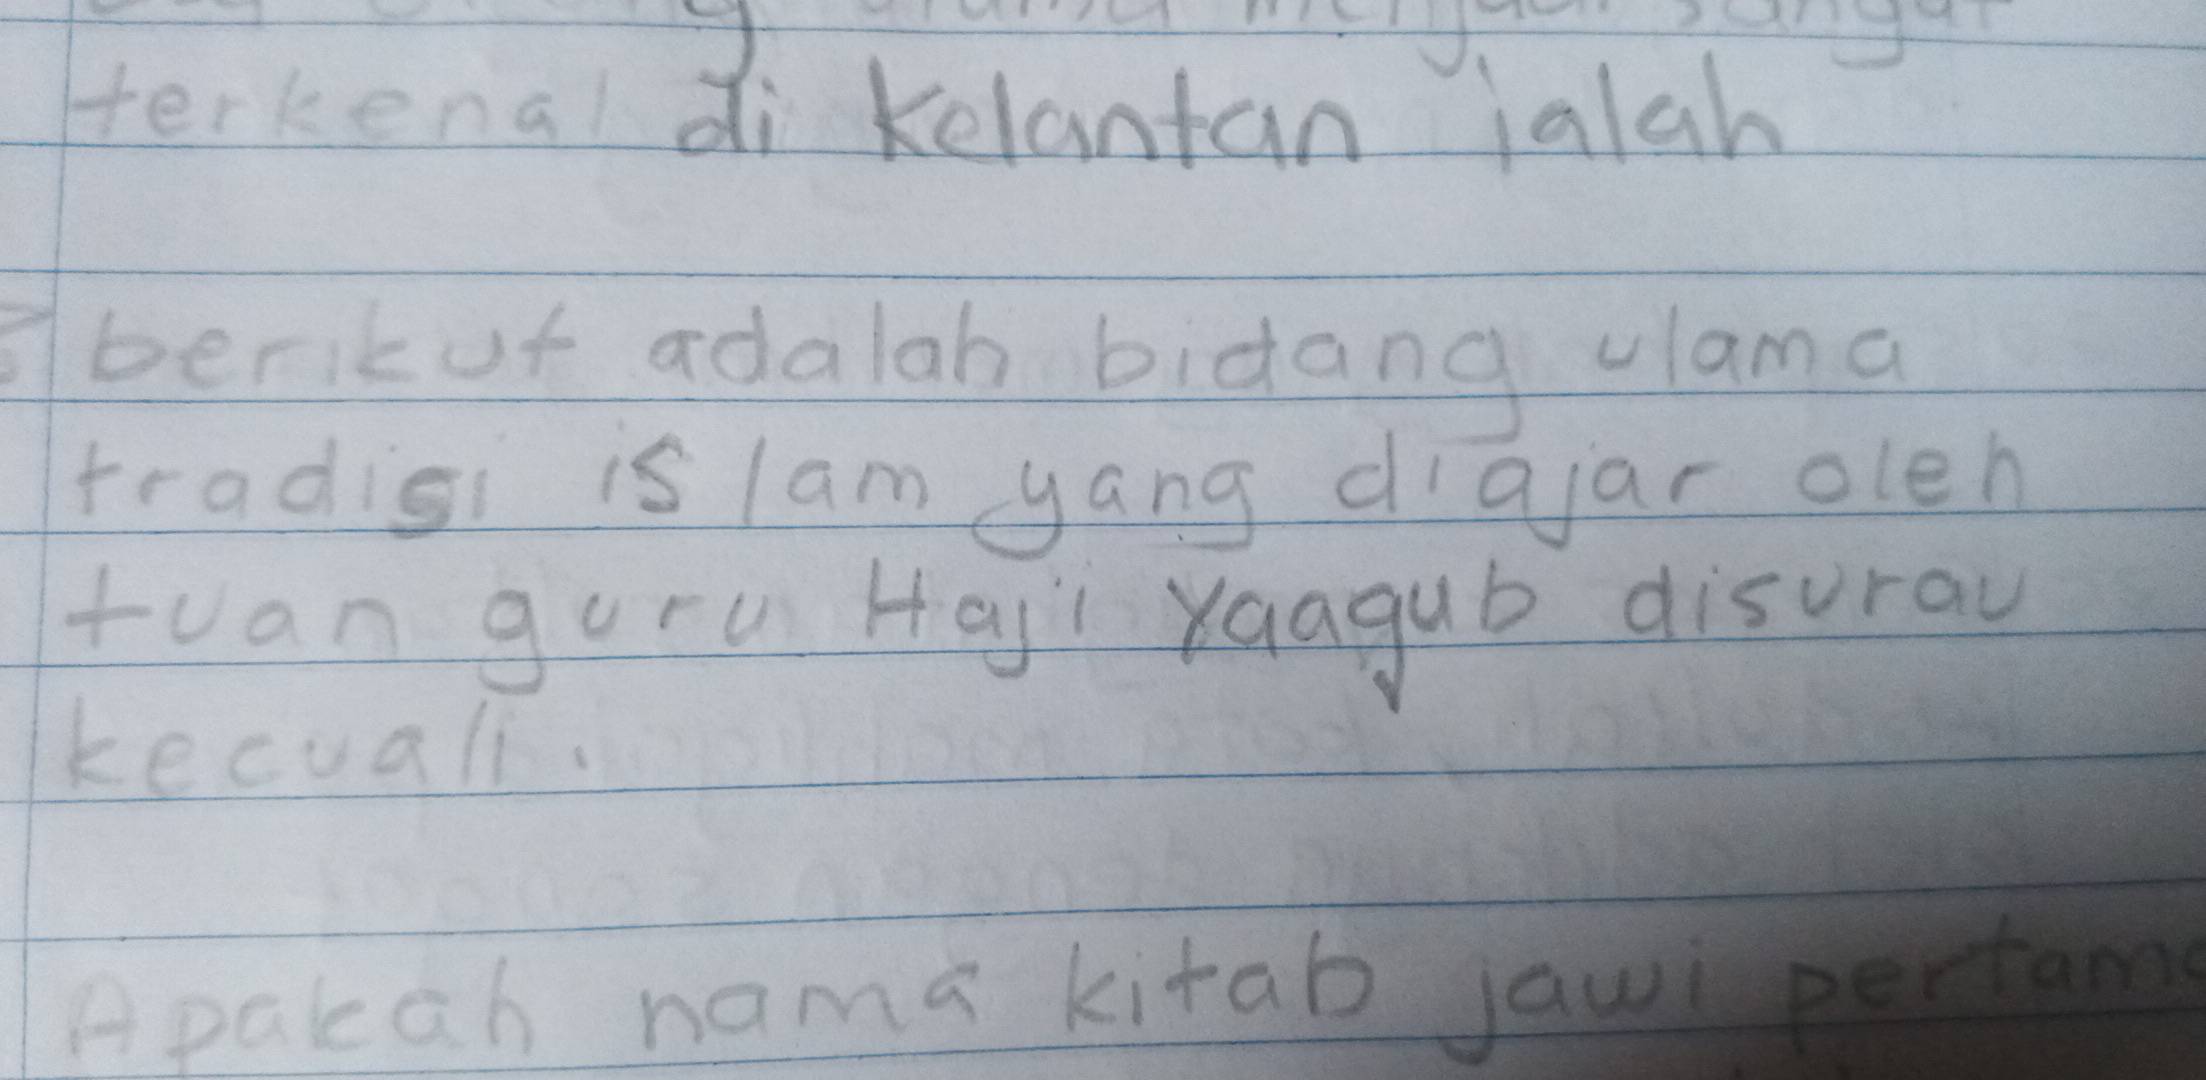 menjadi sangat
terkenal di kelantan ialah
berikut adalah bidang ulama
tradisi islam yang diajar oleh
tuan guru Haji Yaaqub disurau
kecuali.
Apakah nama kitab jawi pertama